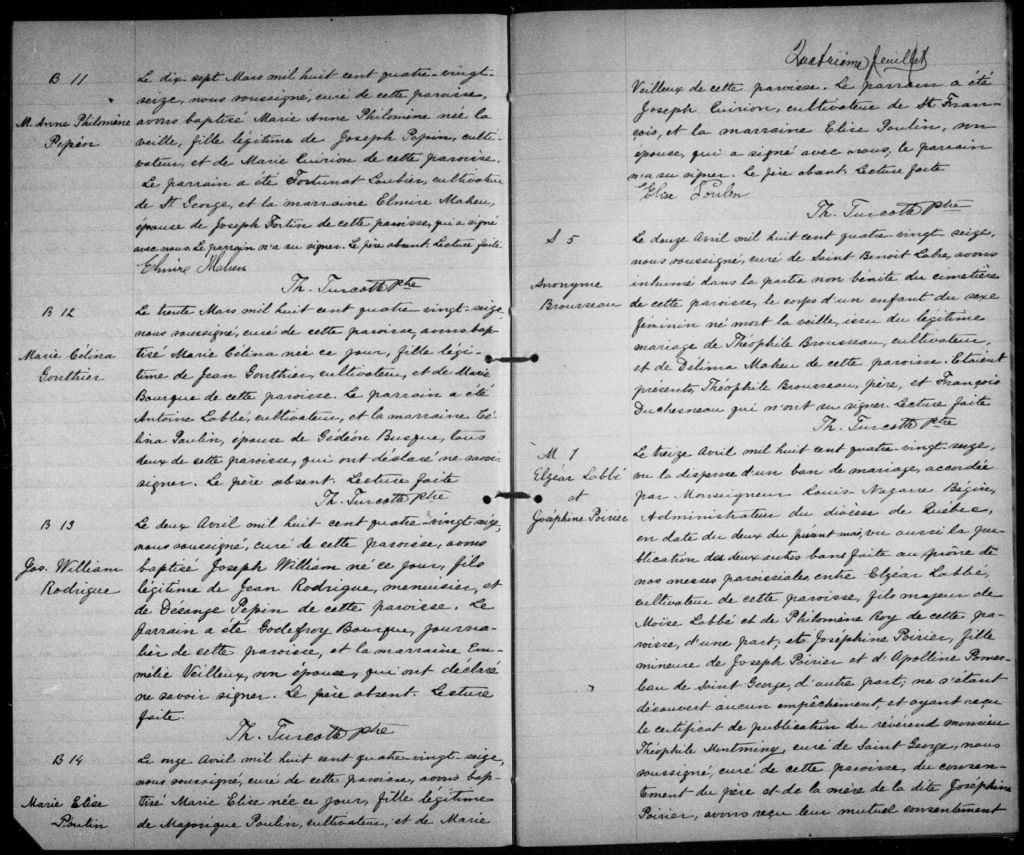 B 11
M. Anne Philomène
Pepin
Le dix sept Mars mil huit cent quatre-vingt-
seize, nous soussigné, curé de cette paroisse,
avons baptisé Marie Anne Philomène née la
veille, fille légitime de Joseph Pepin, culti-
vateur, et de Marie Quirion de cette paroisse.
Le parrain a été Fortunat Loubier, cultivateur
de St George, et la marraine Elmire Maheu,
épouse de Joseph Fortin de cette paroisse, qui a signé
avec nous. Le parrain n'a su signer. Le père absent. Lecture faite
Elmire Maheu
Th. Turcotte ptre
B 12
Marie Célina
Gonthier
Le trente Mars mil huit cent quatre-vingt-seize
nous soussigné, curé de cette paroisse, avons bap-
tisé Marie Célina née ce jour, fille légi-
time de Jean Gonthier, cultivateur, et de Marie
Bourque de cette paroisse. Le parrain a été
Antoine Labbé, cultivateur, et la marraine Cé-
lina Poulin, épouse de Gédéon Busque, tous
deux de cette paroisse, qui ont déclaré ne savoir
signer. Le père absent. Lecture faite
Th. Turcotte ptre
B 13
Jos. William
Rodrigue
Le deux Avril mil huit cent quatre-vingt-seize,
nous soussigné, curé de cette paroisse, avons
baptisé Joseph William né ce jour, fils
légitime de Jean Rodrigue, menuisier, et
de Désange Pepin de cette paroisse. Le
parrain a été Godefroy Bourque, journa-
lier de cette paroisse, et la marraine Em-
mélie Veilleux, son épouse, qui ont déclaré
ne savoir signer. Le père absent. Lecture
faite.
Th. Turcotte ptre
B 14
Marie Elise
Poulin
Le onze Avril mil huit cent quatre-vingt-seize,
nous soussigné, curé de cette paroisse, avons bap-
tisé Marie Elise née ce jour, fille légitime
de Majorique Poulin, cultivateur, et de Marie
Quatrième feuillet
Veilleux de cette paroisse. Le parrain a été
Joseph Quirion, cultivateur de St Fran-
çois, et la marraine Elise Poulin, son
épouse, qui a signé avec nous, le parrain
n'a su signer. Le père absent. Lecture faite
Elise Poulin
Th. Turcotte ptre
S 5
Anonyme
Brousseau
Le douze Avril mil huit cent quatre-vingt-seize,
nous soussigné, curé de Saint Benoit Labre, avons
inhumé dans la partie non bénite du cimetière
de cette paroisse, le corps d'un enfant du sexe
féminin né mort la veille, issu du légitime
mariage de Théophile Brousseau, cultivateur,
et de Délima Maheu de cette paroisse. Etaient
présents, Théophile Brousseau, père, et François
Duchesneau qui n'ont su signer. Lecture faite
Th. Turcotte ptre
M 1
Elzéar Labbé
et
Joséphine Poirier
Le treize Avril mil huit cent quatre-vingt-seize,
vu la dispense d'un ban de mariage, accordée
par Monseigneur Louis-Nazaire Bégin,
Administrateur du diocèse de Québec,
en date du deux du présent mois, vu aussi la pu-
blication des deux autres bans faite au prône de
nos messes paroissiales, entre Elzéar Labbé,
cultivateur de cette paroisse, fils majeur de
Moïse Labbé et de Philomène Roy de cette pa-
roisse, d'une part, et Joséphine Poirier, fille
mineure de Joseph Poirier et d'Apolline Pomer-
leau de Saint George, d'autre part; ne s'étant
découvert aucun empêchement, et ayant reçu
le certificat de publication du révérend monsieur
Théophile Montminy, curé de Saint George, nous
soussigné, curé de cette paroisse, du consen-
tement du père et de la mère de la dite Joséphine
Poirier, avons reçu leur mutuel consentement